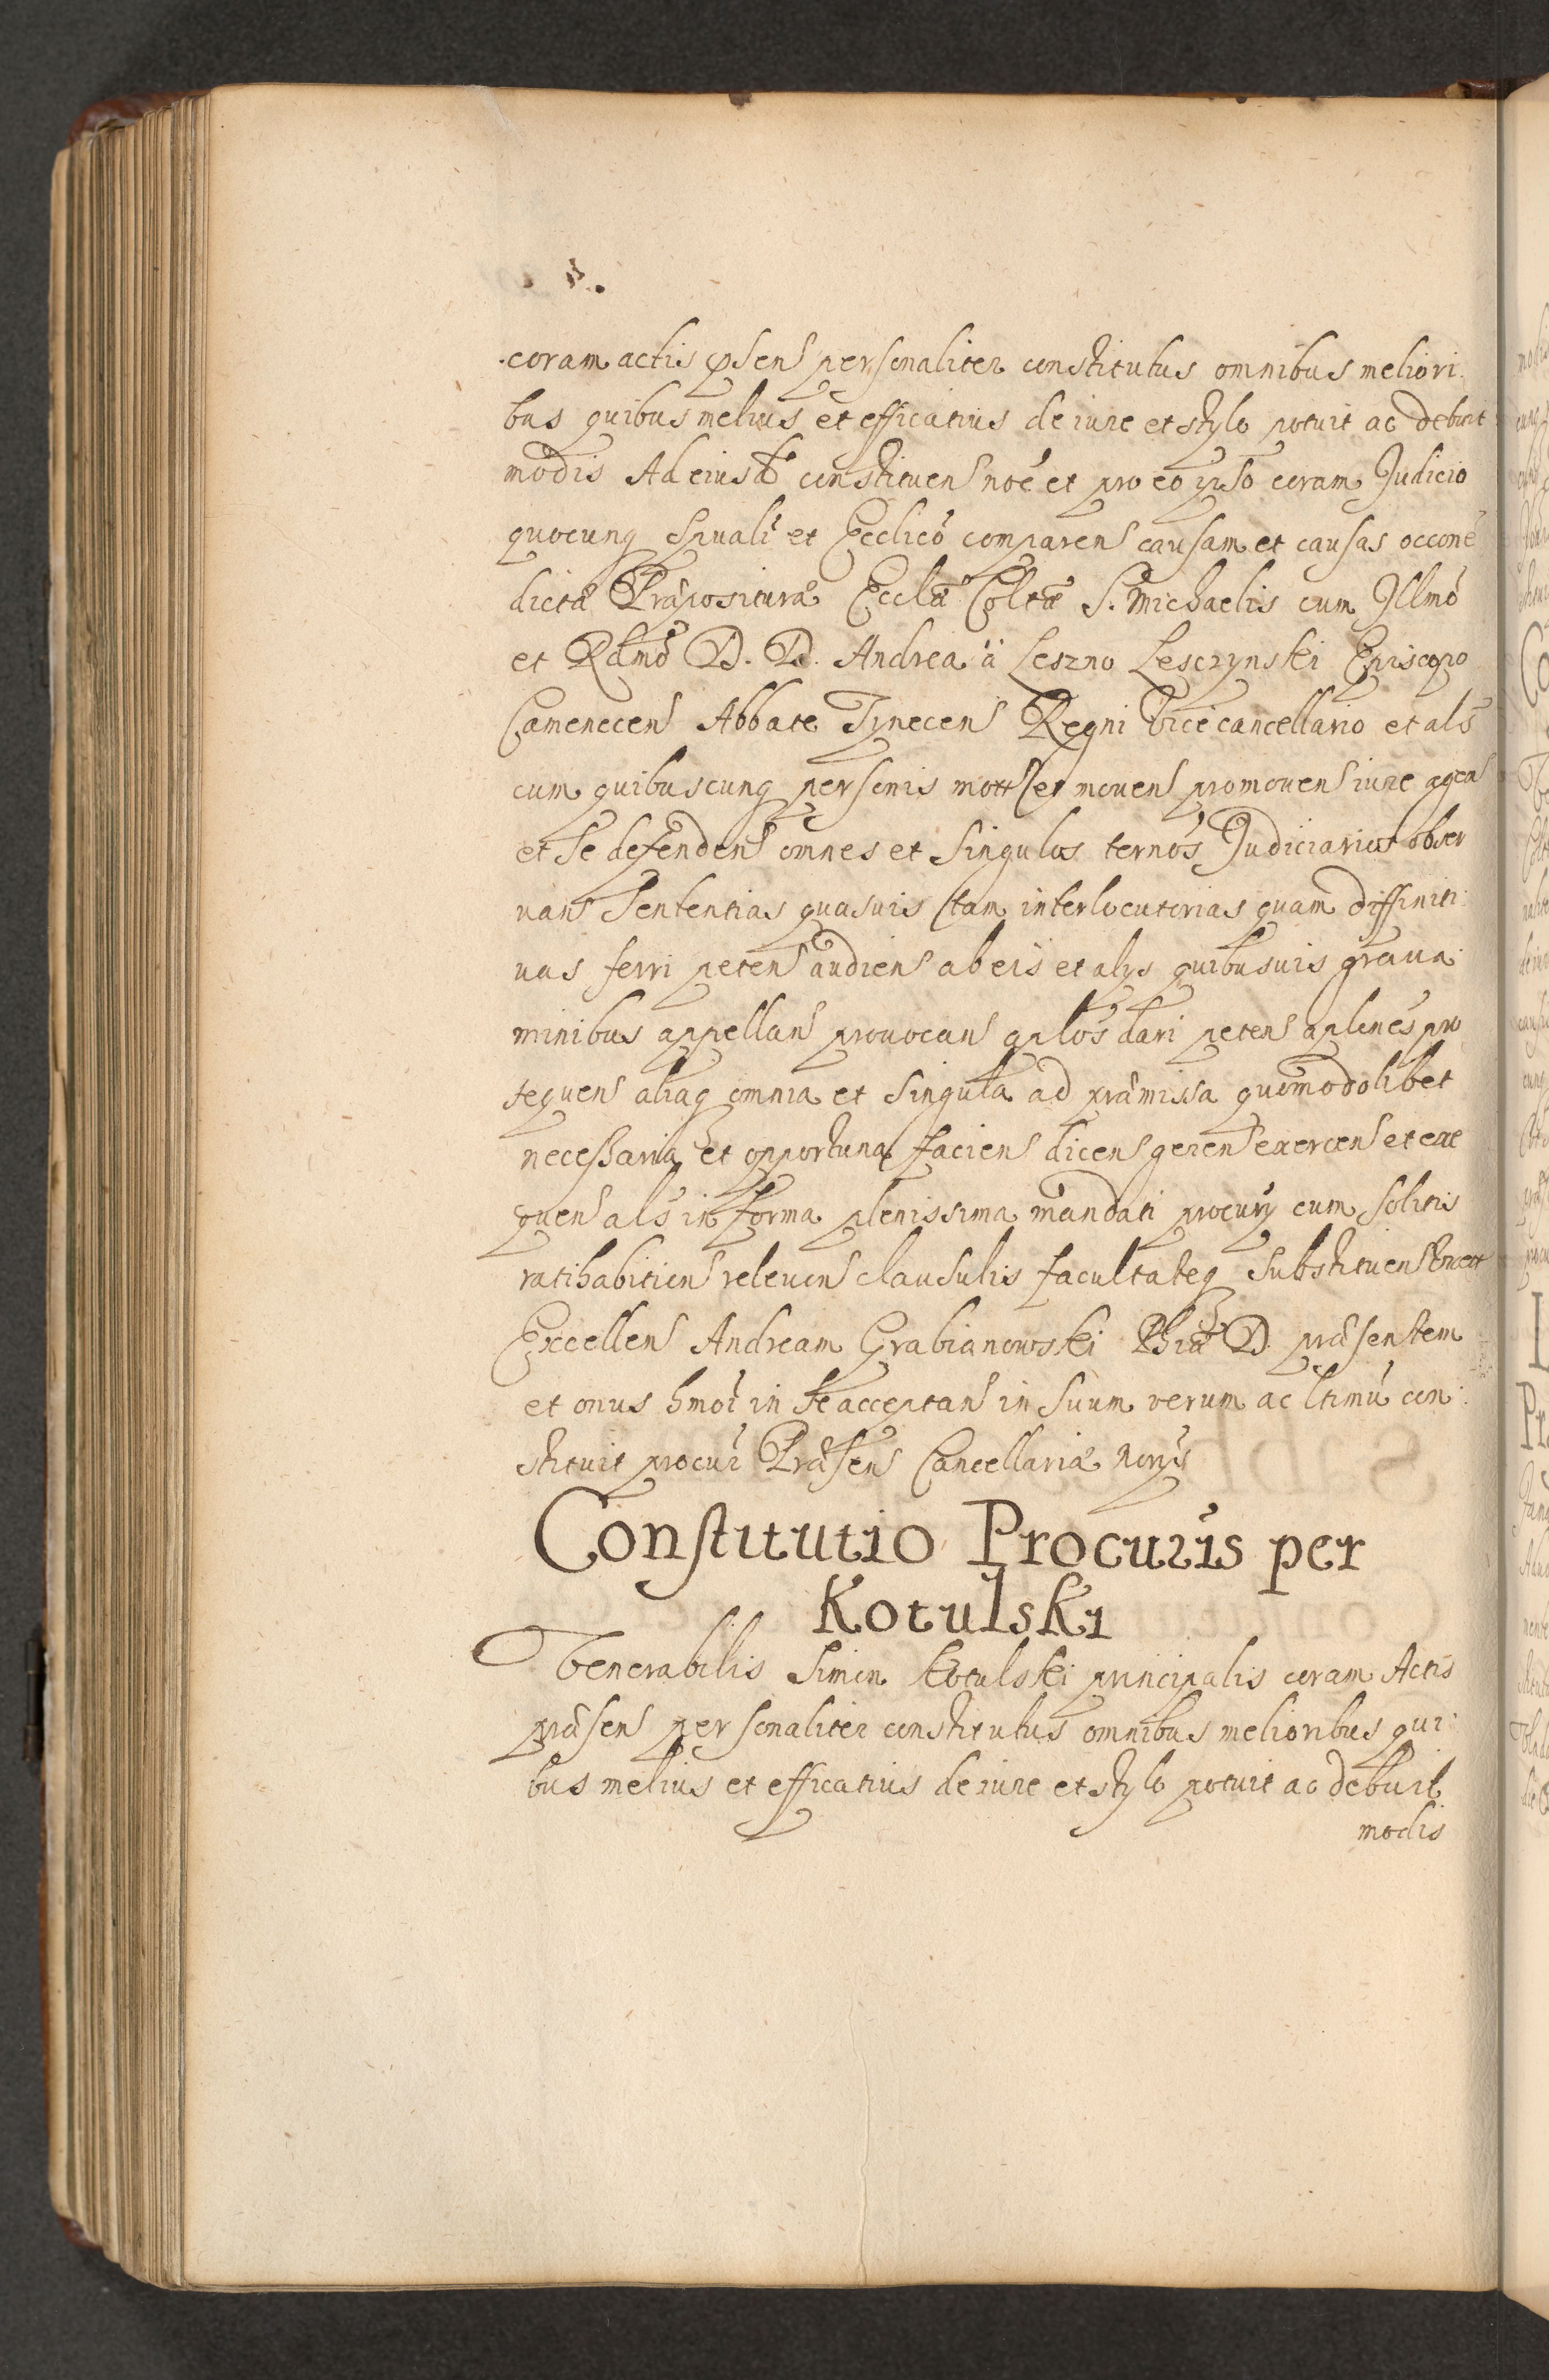 coram actis psens personaliter constitutus omnibus meliori.
bus quibus melius et efficatius de iure et stylo potuit ac debuit
modis Ad eiusd constituens noe et pro eo ipso coram Judicio
quocunq Spuali et Ecclico comparens causam et causas occone
dictæ Præpositura Ecclæ Coltæ S. Michaelis cum Illmo
et Rdmo D. D. Andrea à Leszno Lesczynski Episcopo
Camenecens Abbate Tynecens Regni Vicecancellario et als
cum quibuscunq personis mott et mouens promouens iure agens
et se defendens omnes et singulos ternos Judiciarios obser
uans Sententias quasuis tam interlocutorias quam diffiniti:
uas ferri petens audiens ab eis et alys quibusuis graua:
minibus appellans prouocans aplos dari petens aplones pro
sequens aliaq omnia et singula ad præmissa quomodolibet
necessaria et opportuna faciens dicens gerens exercens et exe
quens als in forma plenissima mandati procury cum solitis
ratihabitiens releuens clausulis facultateq substituens
Excellens Andream Grabianowski Phiæ D. præsentem
et onus hmoi in se acceptans in suum verum ac ltimu con:
stituit procur Præsens Cancellariæ Norys
Constitutio Procuris per
Kotulski
Venerabilis Simon Kotulski principalis coram Actis
præsens personaliter constitutus omnibus melioribus qui:
bus melius et efficatius de iure et stylo potuit ac debuit
modis